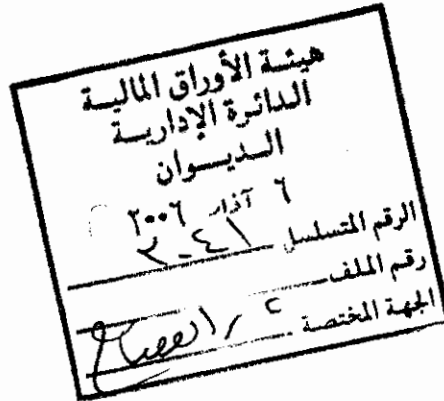 هيئة الأوراق المالية
الدائرة الإدارية
الديوان
٦ آذار ٢٠٠٦
الرقم المتسلسل
رقم الملف
الجهة المختصة